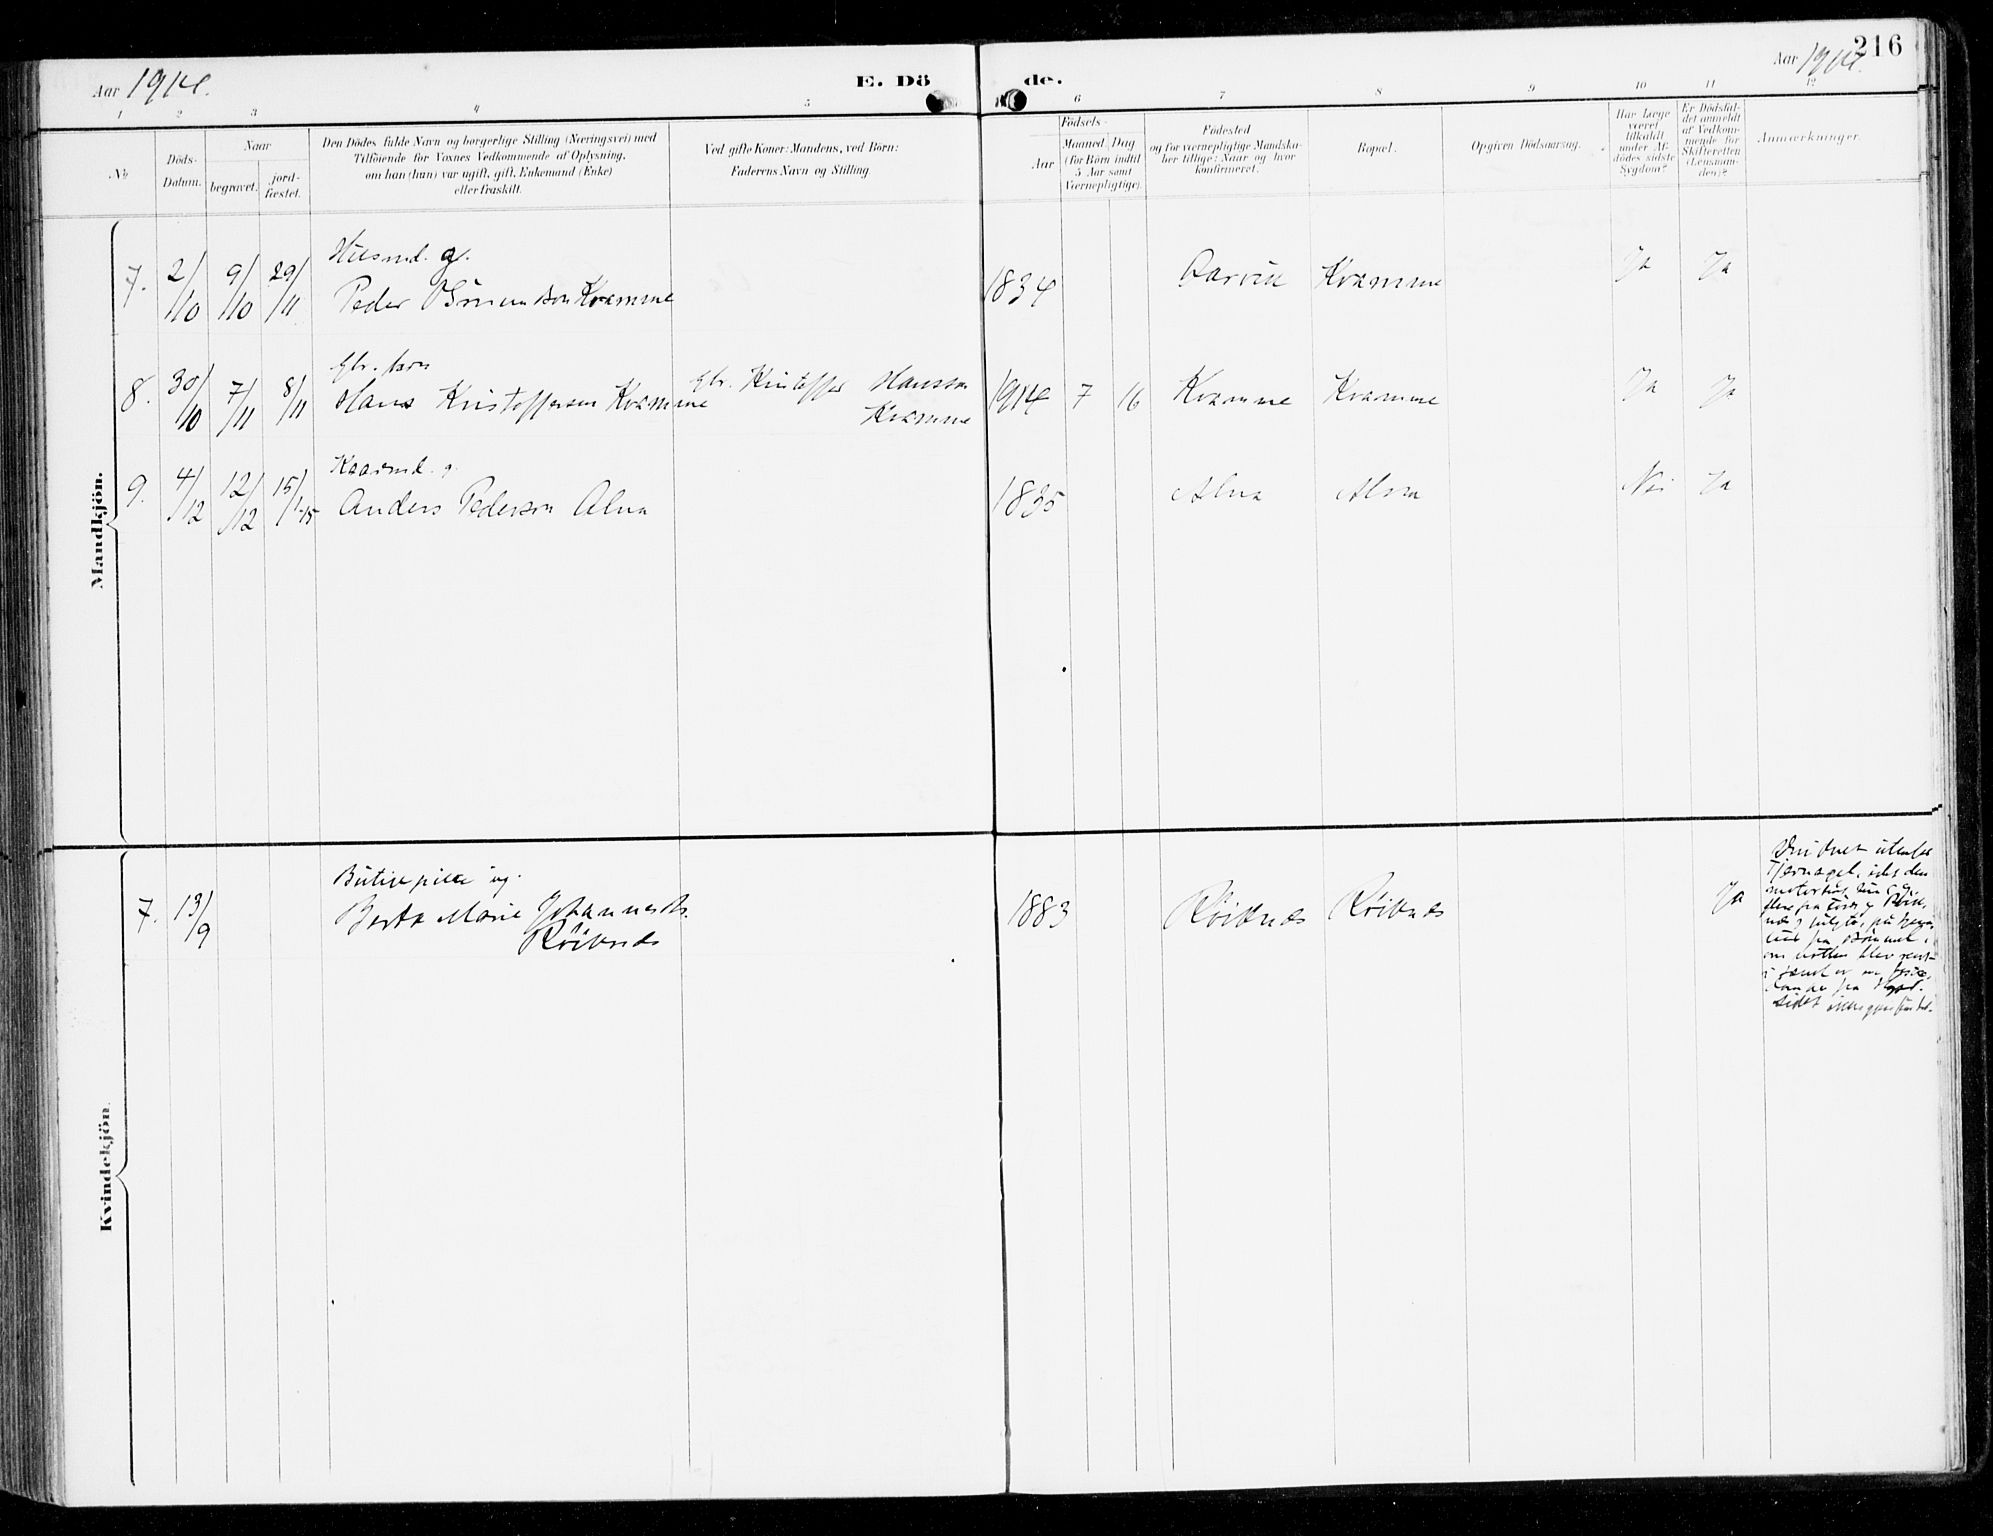 216
Aar 1914.
E. Dö
de.
Aar 1914.
1 2 3 4 5 6 7 8 9 10 11 12
№
Döds-
Datum.
Naar
begravet.
jord-
fæstet.
Den Dödes fulde Navn og borgerlige Stilling (Næringsvei) med
Tilföiende for Voxnes Vedkommende af Oplysning,
om han (hun) var ugift, gift, Enkemand (Enke)
eller fraskilt.
Ved gifte Koner: Mandens, ved Börn:
Faderens Navn og Stilling.
Födsels-
Aar
Maaned Dag
(for Börn indtil
5 Aar samt
Værnepligtige).
Födested
og for værnepligtige Mandska-
ber tillige: Naar og hvor
konfirmeret.
Bopæl.
Opgiven Dödsaarsag.
Har Læge
været
tilkaldt
under Af-
dödes sidste
Sygdom?
Er Dödsfal-
det anmeldt
af Vedkom-
mende for
Skifteretten
(Lensman-
den)?
Anmærkninger.
Mandkjön.
Husmd. g.
7. 2/10 9/10 29/11 Peder Kvamme 1834 Aarvik Kvamme Ja Ja
Gbr. barn
8. 30/10 7/11 8/11 Hans Kristoffersen Kvamme Gbr. Kristoffer Hansson
Kvamme
1914 7 16 Kvamme Kvamme Ja Ja
Kaarmd. g.
9. 4/12 12/12 15/1-15 Anders Pederson Alna 1835 Alna Alna Nei Ja
Kvindekjön.
ug.
7. 13/9 Berta Marie Johannesdt.
Röiknes
1883 Röiknes Röiknes Ja
Druknet utenfor
Tjernagel, idet den